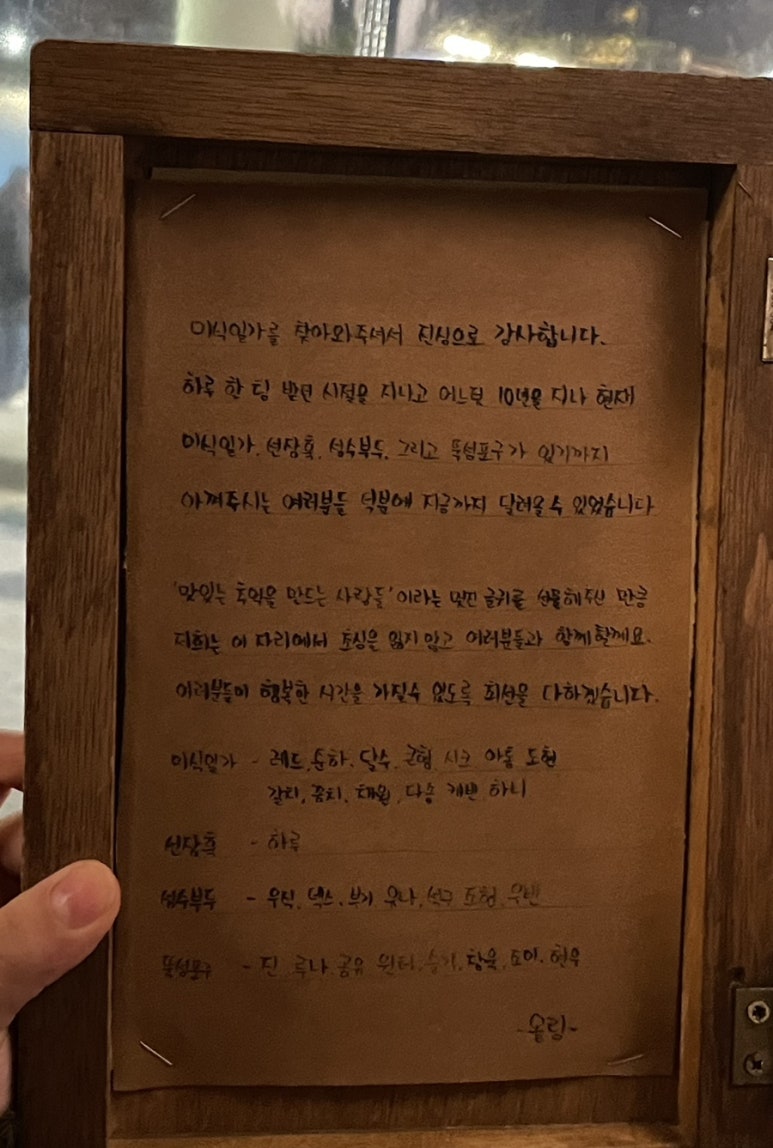 미식일가를 찾아와주셔서 진심으로 감사합니다.
하루 한 팀 받던 시절을 지나고 어느덧 10년을 지나 현재
미식일가, 선장혹, 성수부두, 그리고 뚝섬포구가 있기까지
아껴주시는 여러분들 덕분에 지금까지 달려올 수 있었습니다
'맛있는 추억을 만드는 사람들' 이라는 멋진 글귀를 선물해주신 만큼
저희는 이 자리에서 초심을 잃지 않고 여러분들과 함께 할께요.
여러분들이 행복한 시간을 가질수 있도록 최선을 다하겠습니다.
미식일가 - 레드, 순하, 달수, 시크 아톰 도현
갈치, 꽁치, 채원, 다승 캐빈, 하니
선장혹 - 하루
성수부두 - 우틱, 덱스, 부기 유나, 석구
뚝섬포구 - 진 루나, 공유 윈터, 슬기, 토미, 현우
-올림-